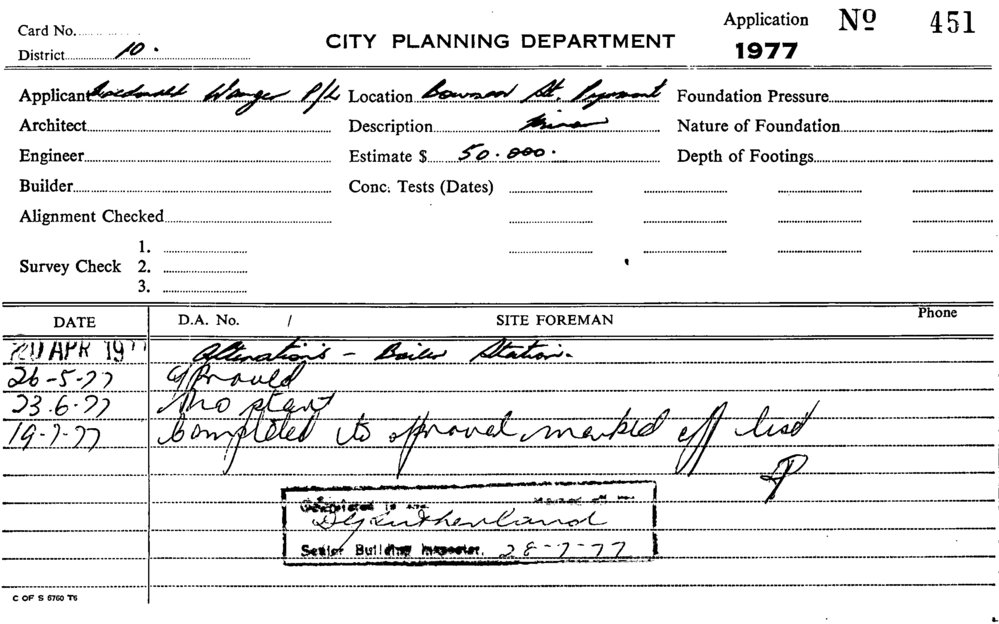 Card No.
District 10.
CITY PLANNING DEPARTMENT
Application Nº 451
1977
Applicant Macdonald Wange P/L Location Bowman St. Pyrmont Foundation Pressure
Architect Description Nature of Foundation
Engineer Estimate $ 50.000. Depth of Footings
Builder Conc. Tests (Dates)
Alignment Checked
1.
Survey Check 2.
3.
DATE D.A. No. / SITE FOREMAN Phone
20 APR 1977 Alterations - Boiler Station.
26-5-77 approved
23.6.77 no start
19-7-77 Completed to approval marked off list
Senior Building Inspector. 28-7-77
C OF S 6760 T6